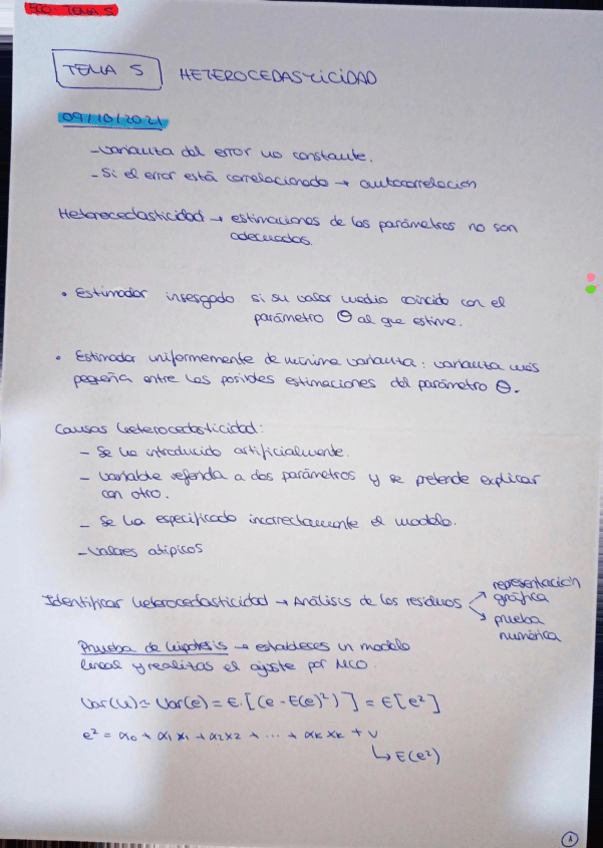 ECO - TEMA 5
TEMA 5 HETEROCEDASTICIDAD
09/10/2021
- Varianza del error no constante.
- Si el error está correlacionado → autocorrelación
Heterocedasticidad → estimaciones de los parámetros no son
adecuados.
• Estimador insesgado si su valor medio coincide con el
parámetro θ al que estima.
• Estimador uniformemente de mínima varianza: varianza más
pequeña entre las posibles estimaciones del parámetro θ.
Causas heterocedasticidad:
- Se ha introducido artificialmente.
- Variable referida a dos parámetros y se pretende explicar
con otro.
- Se ha especificado incorrectamente el modelo.
- Valores atípicos
Identificar heterocedasticidad → Análisis de los residuos
representación
gráfica
prueba
numérica
Prueba de hipótesis → estableces un modelo
lineal y realizas el ajuste por MCO.
Var(u) ≃ Var(e) = E[(e - E(e)²)] = E[e²]
e² = α0 + α1x1 + α2x2 + ... + αkxk + v
↳ E(e²)
1